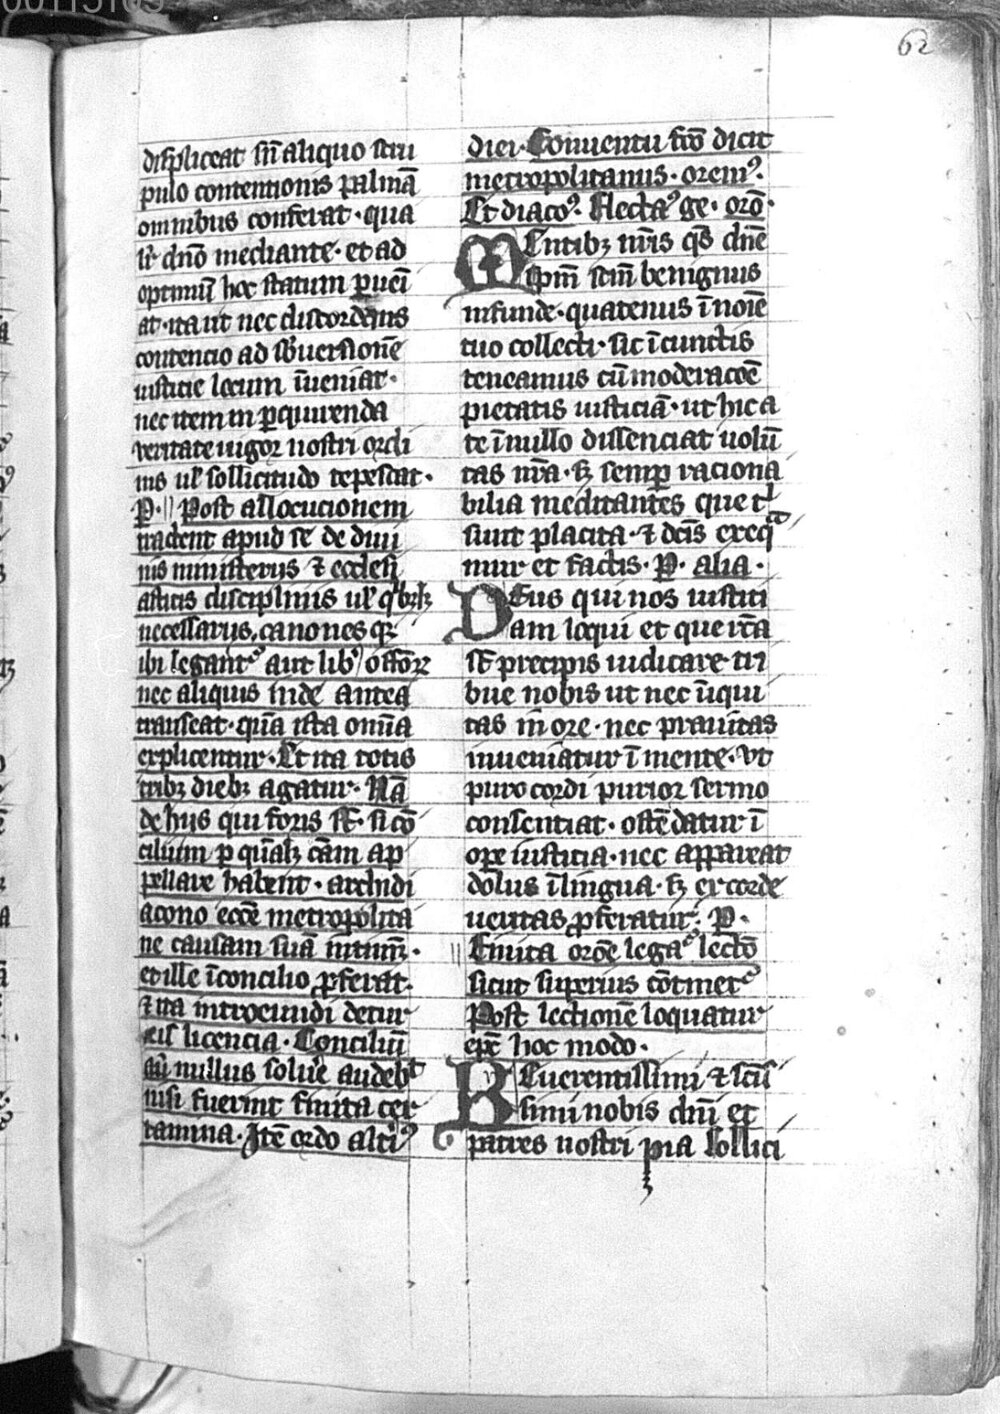 62
displiceat sīn aliquo scru
pulo contentionis palmā
omnibus conferat · qua
dn̄o mediante · et ad
optimū hoc statum ꝑueī
at · ita ut nec discordens
contencio ad sb̄uersionē
iusticie locum īueniat ·
nec item in ꝑquirenda
veritate uigor nostri ordi
nis ul' sollicitudo tepescat ·
P · Post allocucionem
tractent apud se de diui
nis ministeriis ⁊ ecclesi
asticis disciplinis ul' q'bꝫlꝫ
necessariis, canones qꝫ
ibi legantᵉ aut lib' offōꝝ
nec aliquis inde antea
transeat · quā ista om̄ia
explicentur · Et ita totis
tribꝫ diebꝫ agatur · Nā
de hiis qui foris sт̄ · si cō
cilium ꝓ qualꝫ cām ap
pellare habent · archidi
acono eccē metropolita
ne causam suā intimēt ·
et ille ī concilio ꝓferat ·
⁊ ita introeundi detur
eis licencia · Conciliū
aū nullus soluē audebt
nisi fuerint finita cer
tamina · Itē ordo altiꝰ
diei · Conuentu scd̄o dicit
metropolitanus · oremꝰ ·
Et diacoꝰ · Flectaꝰ ge · orō ·
Mentibꝫ nr̄is qs̄ dn̄e
spm̄ scm̄ benignus
infunde · quatenus ī noīe
tuo collecti · sic ī cunctis
teneamus cū moderacōe
pietatis iusticiā · ut hic a
te ī nullo dissenciat uolū
tas nr̄a · sꝫ semp̄ raciona
bilia meditantes que tᵗ
sunt placita · ⁊ dc̄is exeqᵃ
mur et factis · P · alia ·
Deus qui nos iustici
am loqui et que rc̄a
sт̄ precipis iudicare tri
bue nobis ut nec īiqui
tas in ore · nec prauitas
inueniatur ī mente · vt
puro cordi purior sermo
consentiat · ostēdatur ī
oꝑe iusticia · nec appareat
dolus ī lingua · sꝫ ex corde
ueritas ꝓferatur · P ·
Finita orōe legaᵉ lectō
sicut superius cōtinetᵉ
Post lectionē loquatur
epē hoc modo ·
Reuerentissimi ⁊ scīs
simi nobis dn̄i et
patres nostri pia sollici